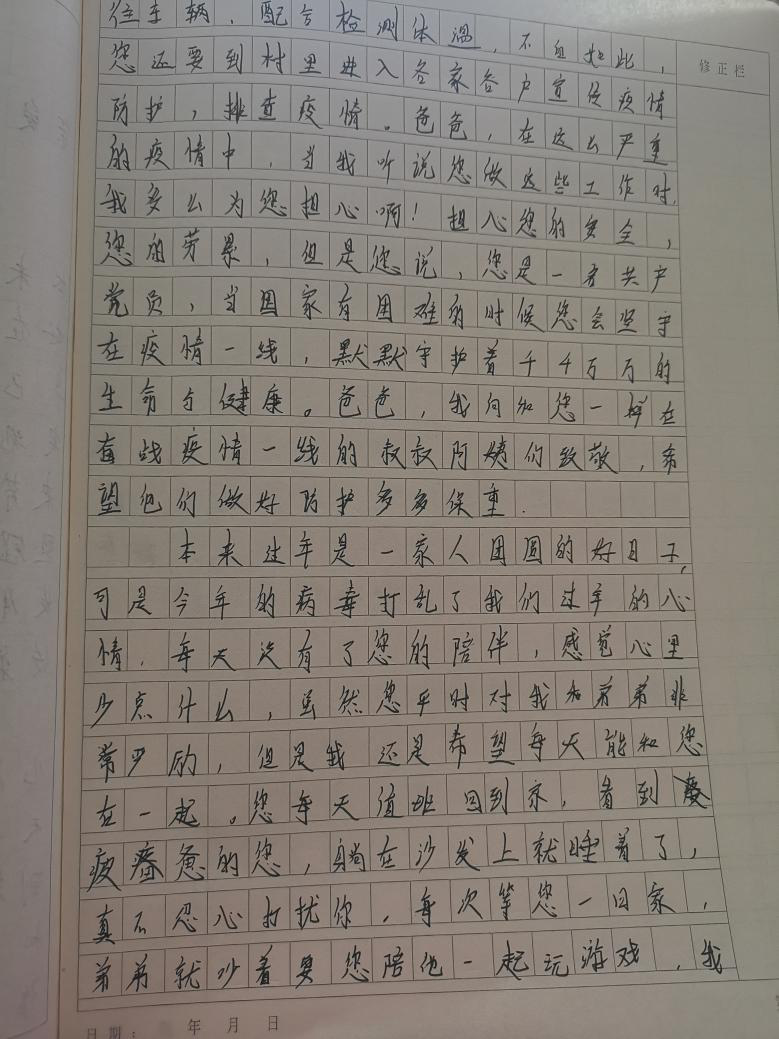 往车辆，配合检测体温，不但如此，
修正栏
您还要到村里进入各家各户宣传疫情
防护，排查疫情。爸爸，在这么严重
的疫情中，当我听说您做这些工作时，
我多么为您担心啊！担心您的安全，
您的劳累，但是您说，您是一名共产
党员，当国家有困难的时候您会坚守
在疫情一线，默默守护着千千万万的
生命与健康。爸爸，我向和您一样在
奋战疫情一线的叔叔阿姨们致敬，希
望他们做好防护多多保重.
本来过年是一家人团圆的好日子，
可是今年的病毒打乱了我们过年的心
情.每天没有了您的陪伴，感觉心里
少点什么，虽然您平时对我和弟弟非
常严励，但是我还是希望每天能和您
在一起。您每天值班回到家，看到
疲惫的您，躺在沙发上就睡着了，
真不忍心打扰你，每次等您一回家，
弟弟就吵着要您陪他一起玩游戏，我
日期： 年 月 日